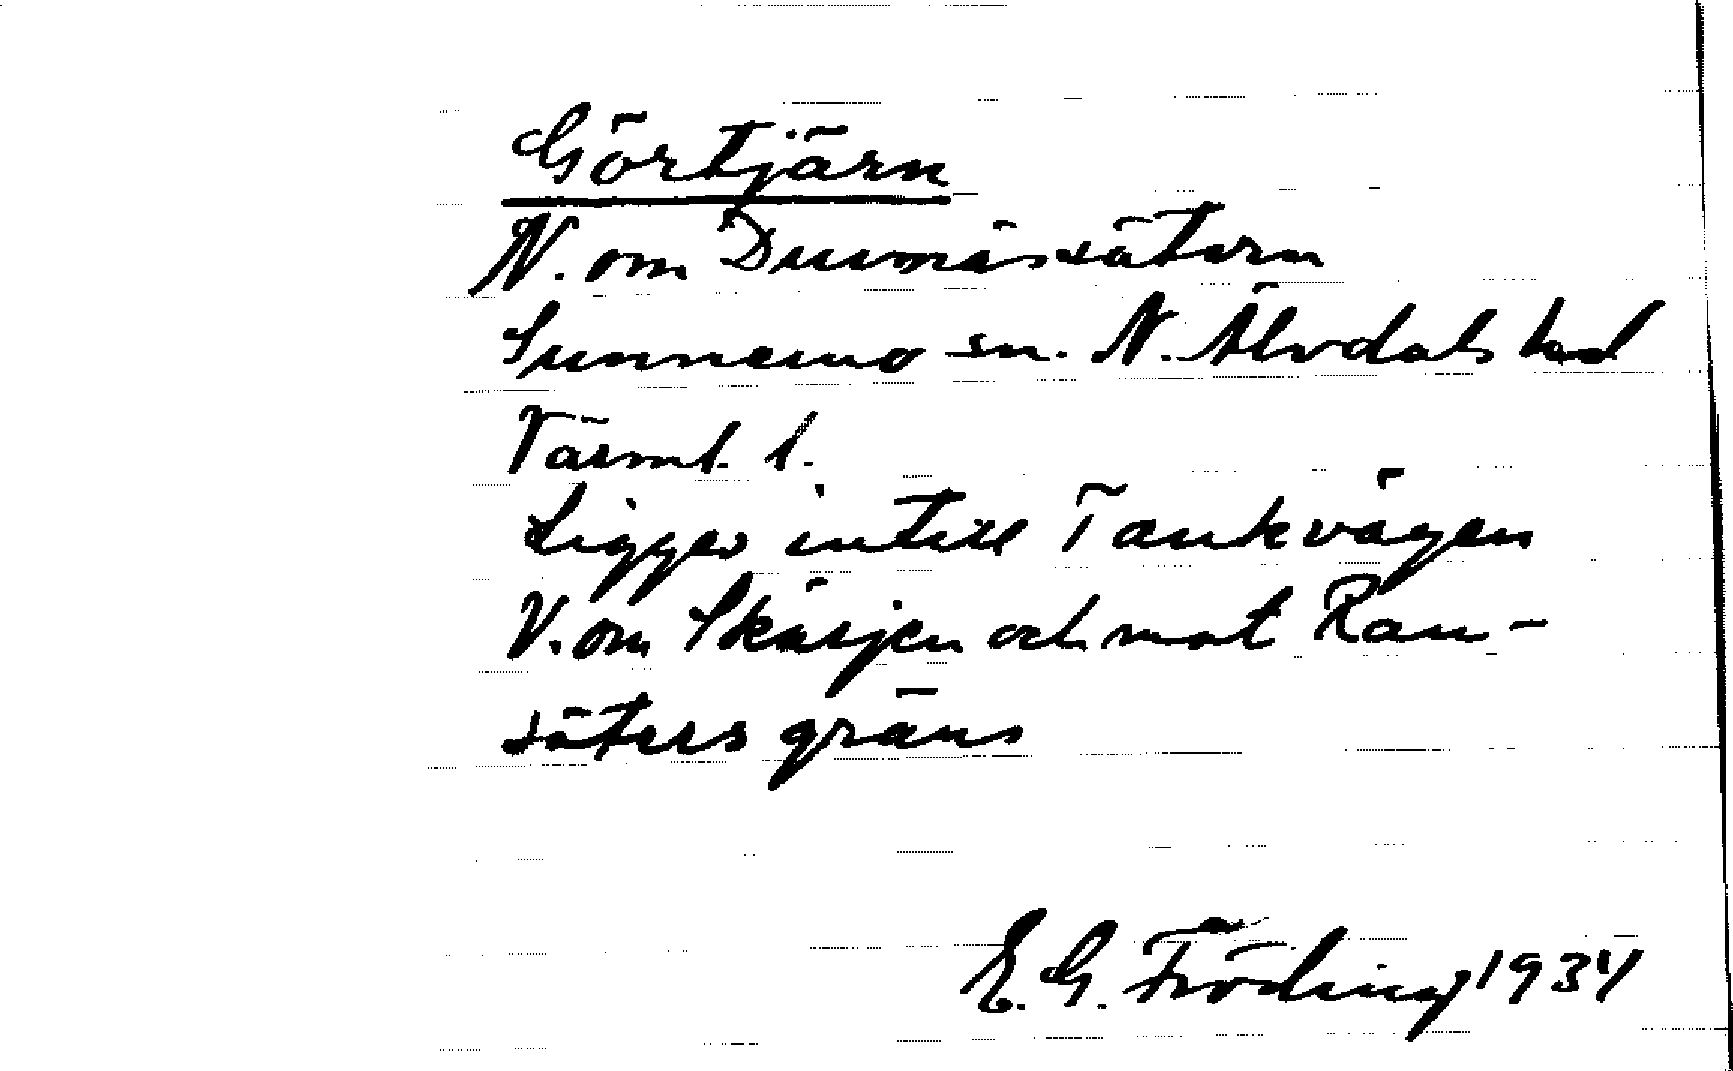 Görtjärn
N. om Dusmässätern
Sunnemo sn. N. Älvdals hd
Värml. l.
Ligger intill Tankvägen
V. om Skärjen och mot Ran-
säters gräns
E. G. Fröding 1934